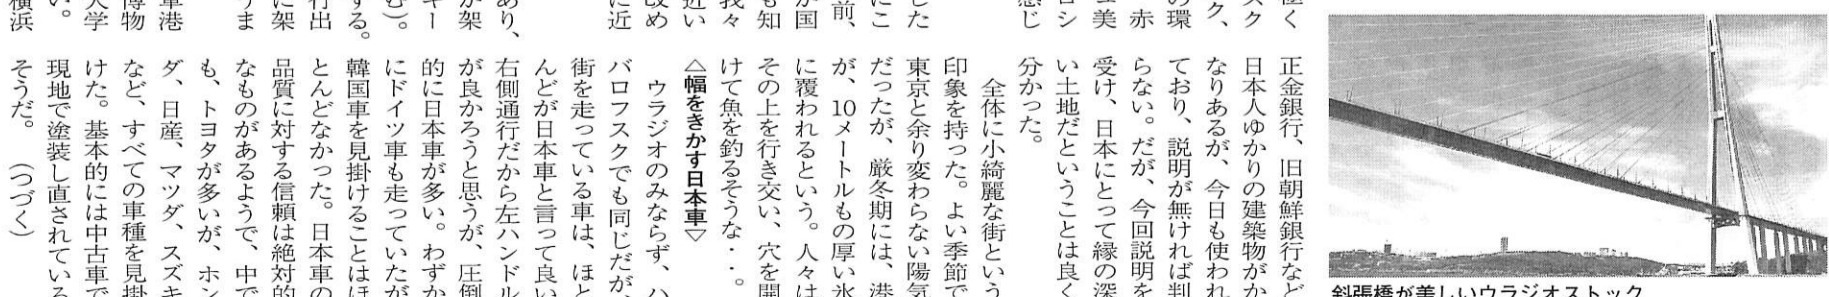 極く
スク
ク、
の環
赤
ュ美
ロシ
感じ
した
にこ
前、
が国
も知
我々
近い
改め
に近
あり、
が架
キー
む)。
する。
行出
に架
りま
軍港
博物
大学
い。
横浜
正金銀行、旧朝鮮銀行など
日本人ゆかりの建築物がか
なりあるが、今日も使われ
ており、説明が無ければ判
らない。だが、今回説明を
受け、日本にとって縁の深
い土地だということは良く
分かった。
全体に小綺麗な街という
印象を持った。よい季節で
東京と余り変わらない陽気
だったが、厳冬期には、港
が、10メートルもの厚い氷
に覆われるという。人々は
その上を行き交い、穴を開
けて魚を釣るそうな・・。
△幅をきかす日本車▽
ウラジオのみならず、ハ
バロフスクでも同じだが、
街を走っている車は、ほと
んどが日本車と言って良い
右側通行だから左ハンドル
が良かろうと思うが、圧倒
的に日本車が多い。わずか
にドイツ車も走っていたが
韓国車を見掛けることはほ
とんどなかった。日本車の
品質に対する信頼は絶対的
なものがあるようで、中で
も、トヨタが多いが、ホン
ダ、日産、マツダ、スズキ
など、すべての車種を見掛
けた。基本的には中古車で
現地で塗装し直されている
そうだ。 (つづく)
斜張橋が美しいウラジオストック